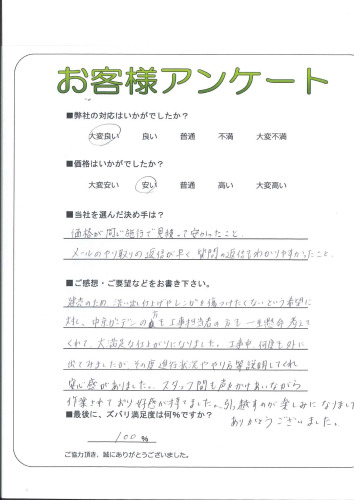 お客様アンケート
■弊社の対応はいかがでしたか?
大変良い 良い 普通 不満 大変不満
■価格はいかがでしたか?
大変安い 安い 普通 高い 大変高い
■当社を選んだ決め手は?
価格が同じ施行で見積って安かったこと。
メールのやり取りの返信が早く質問の返信もわかりやすかったこと。
■ご感想・ご要望などをお書き下さい。
建売のため、洗い出し仕上げやレンガを傷つけたくないという希望に
対し、中京ガーデンの方も工事担当者の方も一生懸命考えて
くれて、大満足な仕上がりになりました。工事中、何度も外に
出てみましたが、その度進行状況ややり方等説明してくれ
安心感がありました。スタッフ間も声をかけあいながら
作業されており好感が持てました。引越すのが楽しみになりました
ありがとうございました。
■最後に、ズバリ満足度は何%ですか?
100%
ご協力頂き、誠にありがとうございました。